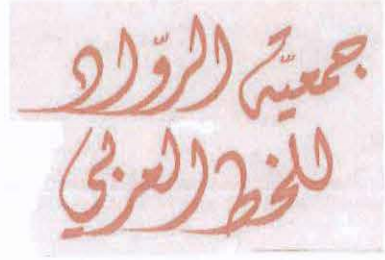 جمعيّة الروّاد
للخط العربي